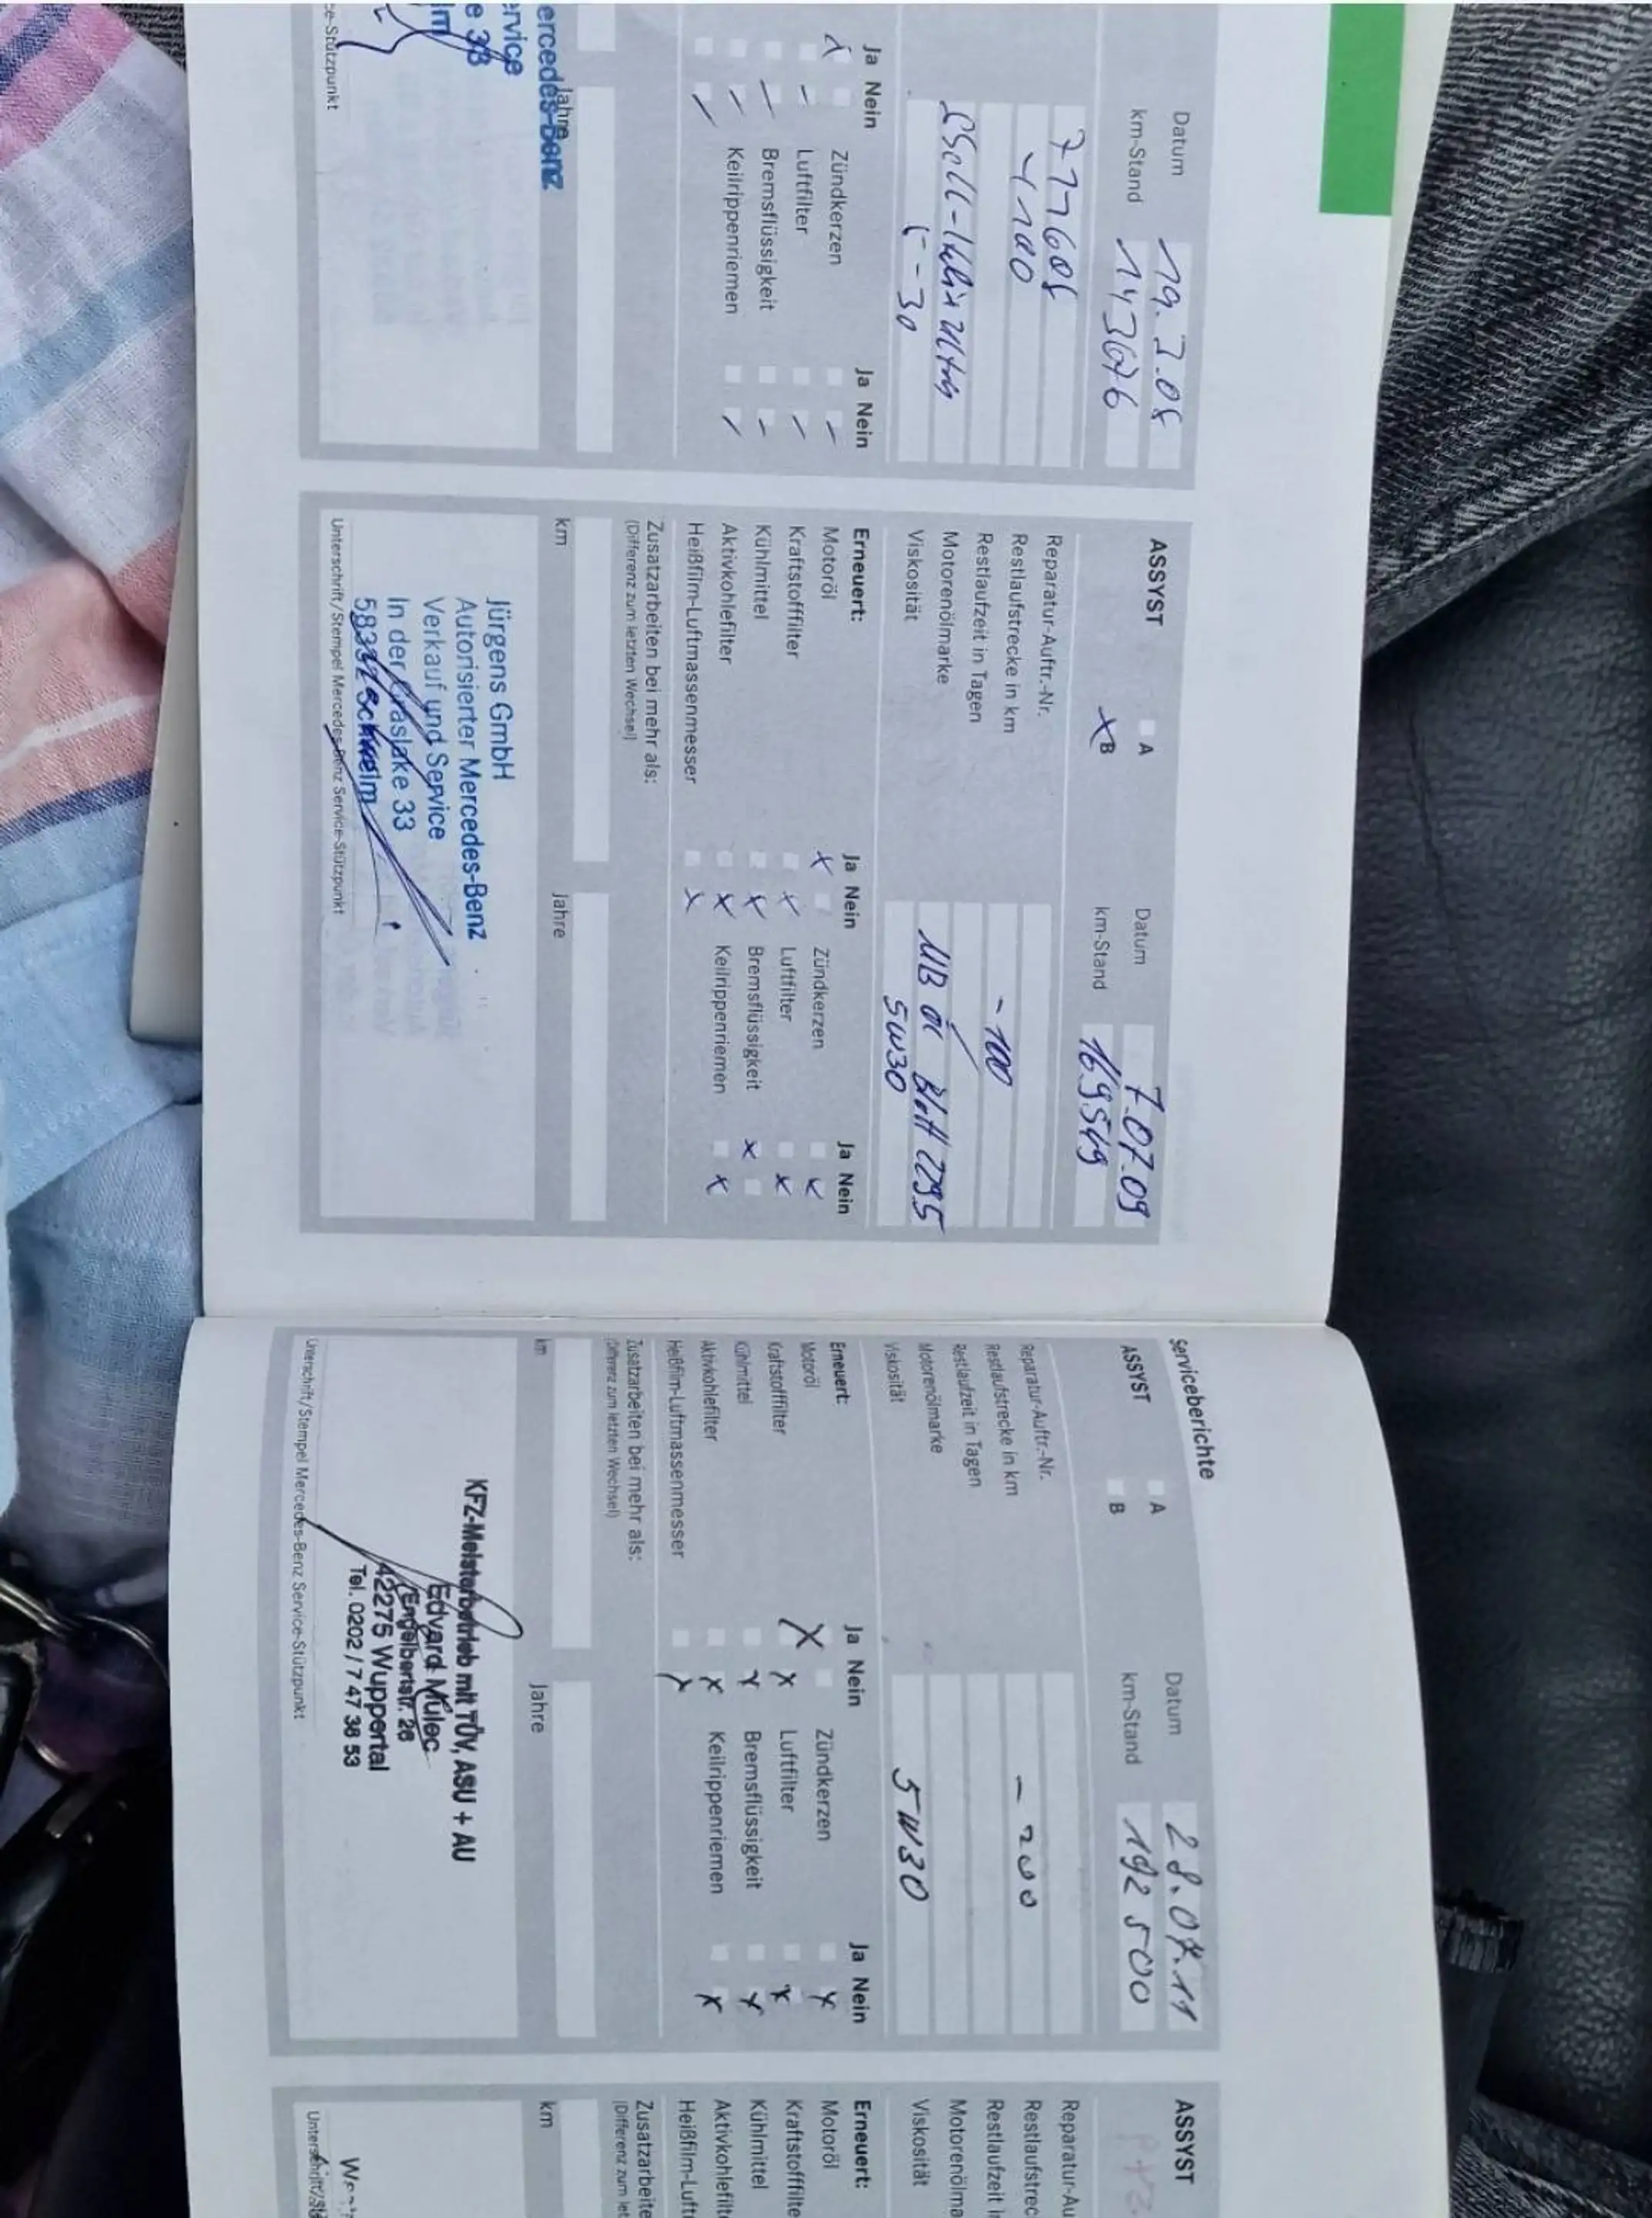 Datum 19.3.08
km-Stand
- 1100
5-30
Ja Nein
Zündkerzen
Luftfilter
Bremsflüssigkeit
Keilrippenriemen
Ja Nein
Jahre
ercedes-Benz
ervice
e 33
lm
ce-Stützpunkt
ASSYST
A
B
Datum 7.07.09
km-Stand 169.549
Reparatur-Auftr.-Nr.
Restlaufstrecke in km - 100
Restlaufzeit in Tagen
Motorenölmarke MB öl Blatt 229.5
Viskosität 5W30
Erneuert: Ja Nein Ja Nein
Motoröl Zündkerzen
Kraftstofffilter Luftfilter
Kühlmittel Bremsflüssigkeit
Aktivkohlefilter Keilrippenriemen
Heißfilm-Luftmassenmesser
Zusatzarbeiten bei mehr als:
(Differenz zum letzten Wechsel)
km Jahre
Jürgens GmbH
Autorisierter Mercedes-Benz
Verkauf und Service
In der Graslake 33
58332 Schwelm
Unterschrift/Stempel Mercedes-Benz Service-Stützpunkt
Serviceberichte
ASSYST
A
B
Datum 28.07.11
km-Stand 192 500
Reparatur-Auftr.-Nr.
Restlaufstrecke in km - 200
Restlaufzeit in Tagen
Motorenölmarke
Viskosität 5W30
Erneuert: Ja Nein Ja Nein
Motoröl Zündkerzen
Kraftstofffilter Luftfilter
Kühlmittel Bremsflüssigkeit
Aktivkohlefilter Keilrippenriemen
Heißfilm-Luftmassenmesser
Zusatzarbeiten bei mehr als:
(Differenz zum letzten Wechsel)
km Jahre
KFZ-Meisterbetrieb mit TÜV, ASU + AU
Edvard Mulec
Engelbertstr. 26
42275 Wuppertal
Tel. 0202 / 7 47 38 53
Unterschrift/Stempel Mercedes-Benz Service-Stützpunkt
ASSYST
Reparatur-Au
Restlaufstrec
Restlaufzeit i
Motorenölma
Viskosität
Erneuert:
Motoröl
Kraftstofffilte
Kühlmittel
Aktivkohlefilt
Heißfilm-Luft
Zusatzarbeite
(Differenz zum let
km